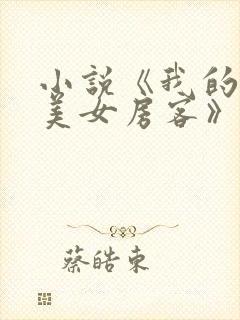 小説《我的
美女房客》
蔡皓東